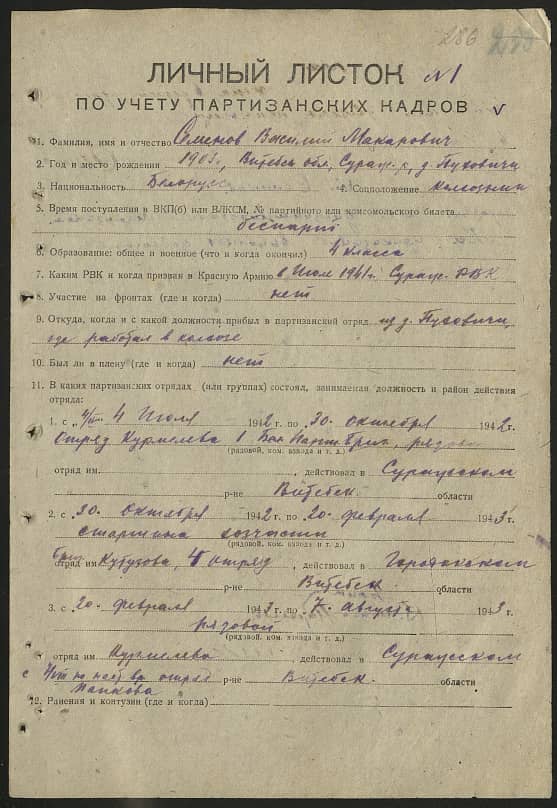 286
ЛИЧНЫЙ ЛИСТОК №1
ПО УЧЕТУ ПАРТИЗАНСКИХ КАДРОВ
1. Фамилия, имя и отчество Семенов Василий Макарович
2. Год и место рождения 1903 г., Витебск обл, Сураж. р, д. Пуховичи
3. Национальность Белорусс 4. Соцположение колхозник
5. Время поступления в ВКП(б) или ВЛКСМ, № партийного или комсомольского билета
беспарт
6. Образование: общее и военное (что и когда окончил) 4 класса
7. Каким РВК и когда призван в Красную Армию в Июле 1941 г. Сураж. РВК
8. Участие на фронтах (где и когда) нет
9. Откуда, когда и с какой должности прибыл в партизанский отряд из д. Пуховичи,
где работал в колхозе
10. Был ли в плену (где и когда) нет
11. В каких партизанских отрядах (или группах) состоял, занимаемая должность и район действия
отряда:
1. с „ 4 Июля 1942 г. по 30. октября 1942 г.
Отряд Курмелева 1 Бел Парт Бриг, рядовой
(рядовой, ком. взвода и т. д.)
отряд им , действовал в Суражском
р-не Витебск области
2. с 30. октября 1942 г. по 20. февраля 1943 г.
старшина хозчасти
(рядовой, ком. взвода и т. д.)
Бриг. отряд им Кутузова, 4 отряд, действовал в Городокском
р-не Витебск. области
3. с 20. февраля 1943 г. по 7. августа 1943 г.
рядовой
(рядовой, ком. взвода и т. д.)
отряд им Курмелева действовал в Суражском
р-не Витебск. области
12. Ранения и контузии (где и когда)